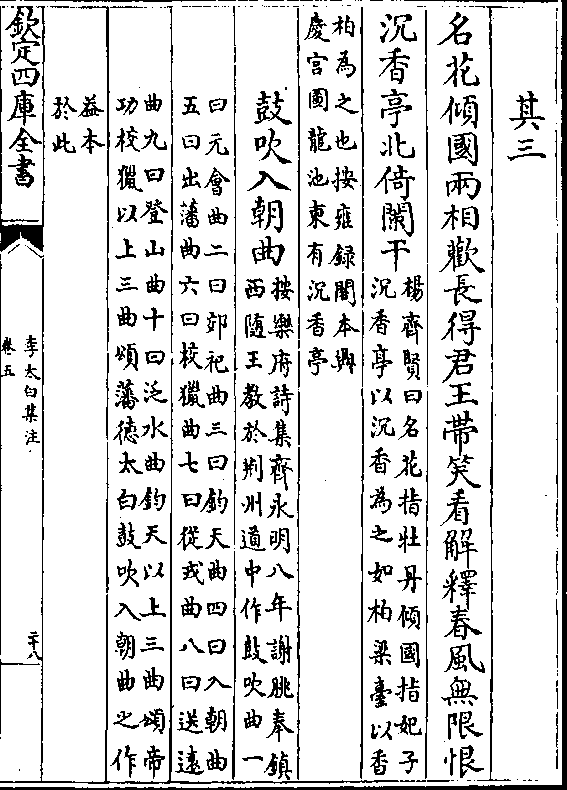 其三
名花傾國兩相歡長得君王帶笑看解釋春風無限恨
沉香亭北倚闌干
楊齊賢曰名花指牡丹傾國指妃子
沉香亭以沉香為之如柏梁臺以香
柏為之也按雍録閣本興
慶宫圖龍池東有沉香亭
鼓吹入朝曲
按樂府詩集齊永明八年謝朓奉鎮
西随王教於荆州道中作鼓吹曲一
曰元會曲二曰郊祀曲三曰鈞天曲四曰入朝曲
五曰出藩曲六曰校獵曲七曰從戎曲八曰送逺
曲九曰登山曲十曰泛水曲鈞天以上三曲頌帝
功校獵以上三曲頌藩徳太白鼓吹入朝曲之作
益本
於此
欽定四庫全書
李太白集注
卷五
二十八